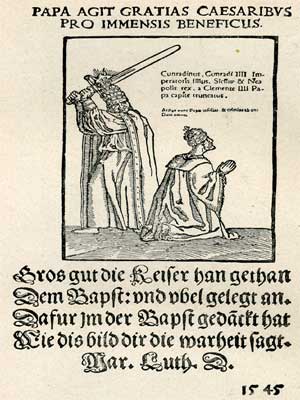 PAPA AGIT GRATIAS CAESARIBVS
PRO IMMENSIS BENEFICIIS.
Conradinus, Conradi IIII Im-
peratoris filius, Siciliæ & Nea
polis rex, a Clemente IIII Pa
pa capite truncatus.
Gros gut die Keiser han gethan
Dem Bapst: vnd vbel gelegt an.
Dafur jm der Bapst gedãckt hat
Wie dis bild dir die warheit sagt.
Mar. Luth. D.
1545